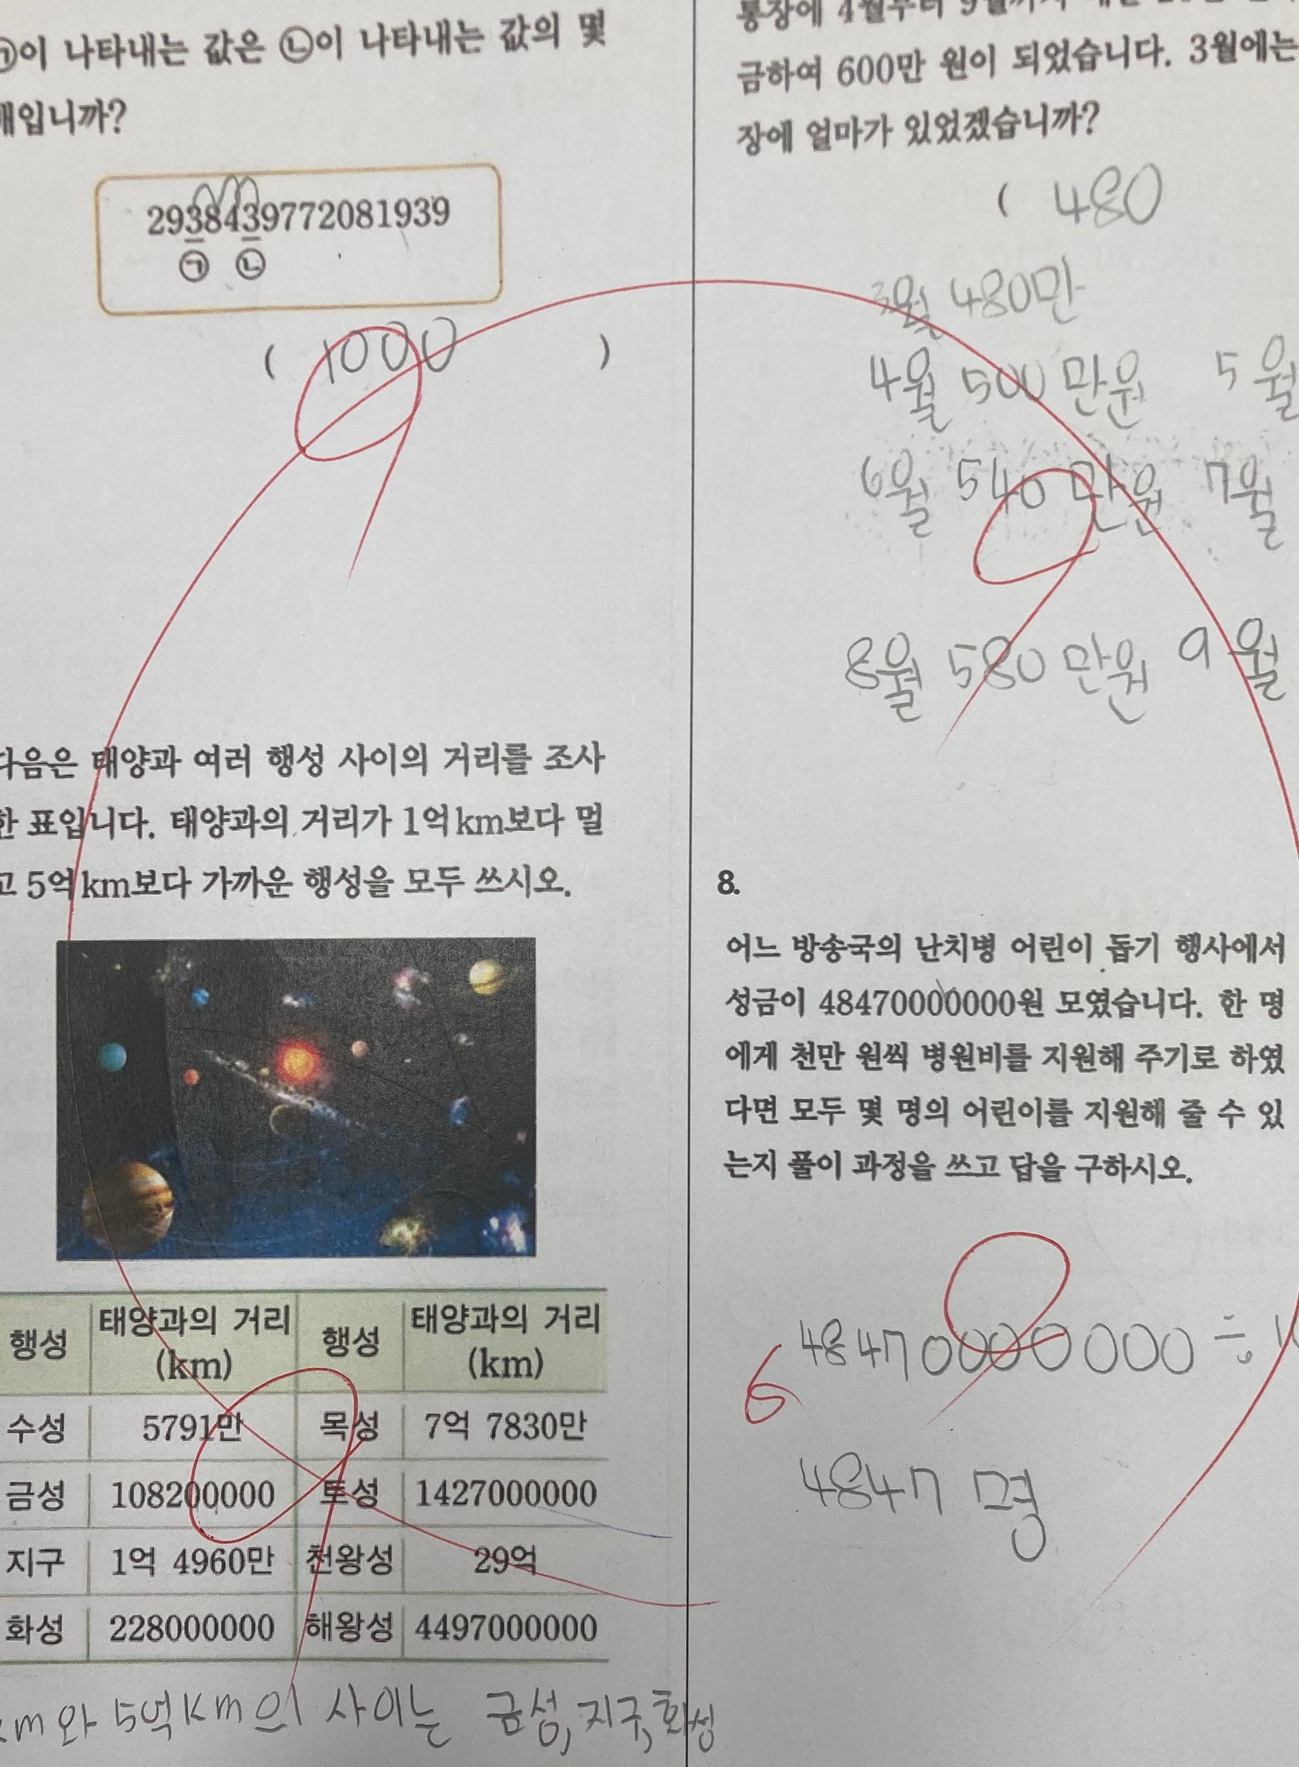 이 나타내는 값은 ㉡이 나타내는 값의 몇
배입니까?
2938439772081939
㉠ ㉡
( 1000 )
다음은 태양과 여러 행성 사이의 거리를 조사
한 표입니다. 태양과의 거리가 1억 km보다 멀
고 5억 km보다 가까운 행성을 모두 쓰시오.
행성 태양과의 거리 (km) 행성 태양과의 거리 (km)
수성 5791만 목성 7억 7830만
금성 108200000 토성 1427000000
지구 1억 4960만 천왕성 29억
화성 228000000 해왕성 4497000000
km와 5억km의 사이는 금성, 지구, 화성
통장에 4월부터 9월까지
금하여 600만 원이 되었습니다. 3월에는
장에 얼마가 있었겠습니까?
( 480
3월 480만
4월 500만원 5월
6월 540만원 7월
8월 580만원 9월
8.
어느 방송국의 난치병 어린이 돕기 행사에서
성금이 48470000000원 모였습니다. 한 명
에게 천만 원씩 병원비를 지원해 주기로 하였
다면 모두 몇 명의 어린이를 지원해 줄 수 있
는지 풀이 과정을 쓰고 답을 구하시오.
48470000000 ÷ 1
6
4847 명